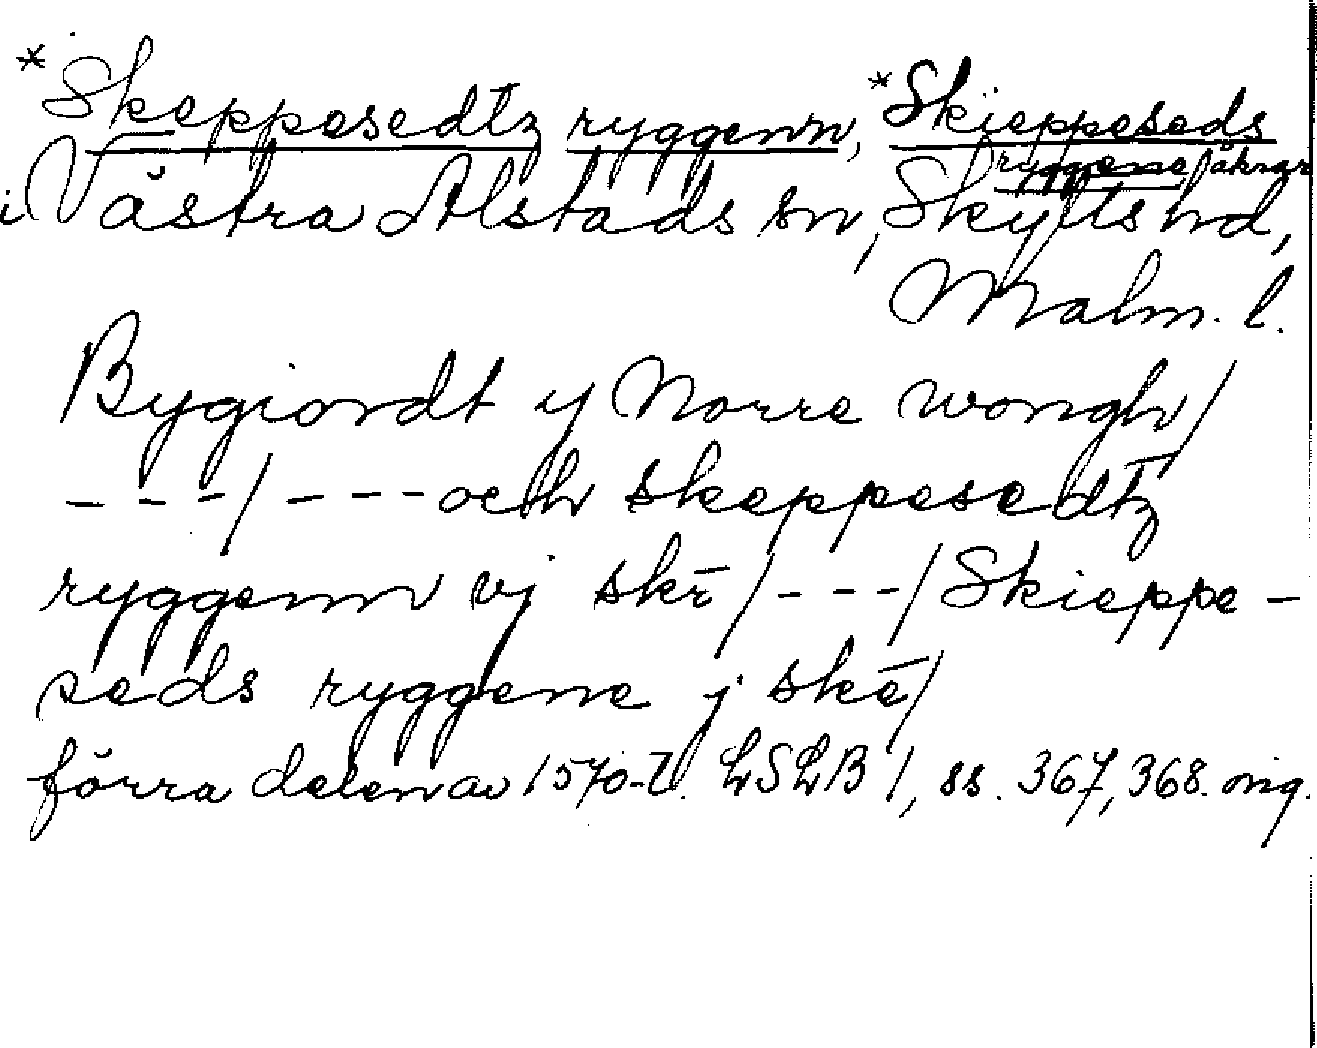 *Skeppesedtz ryggenn, *Skieppeseds
ryggene, åkrar
i Västra Alstads sn, Skytts hd,
Malm. l.
Bygiordt y Norre wongh/
---/---och skeppesedtz
ryggenn vj skr̄/---/Skieppe-
seds ryggene j skē/
förra delen av 1570-t. LSLB 1, ss. 367, 368. orig.